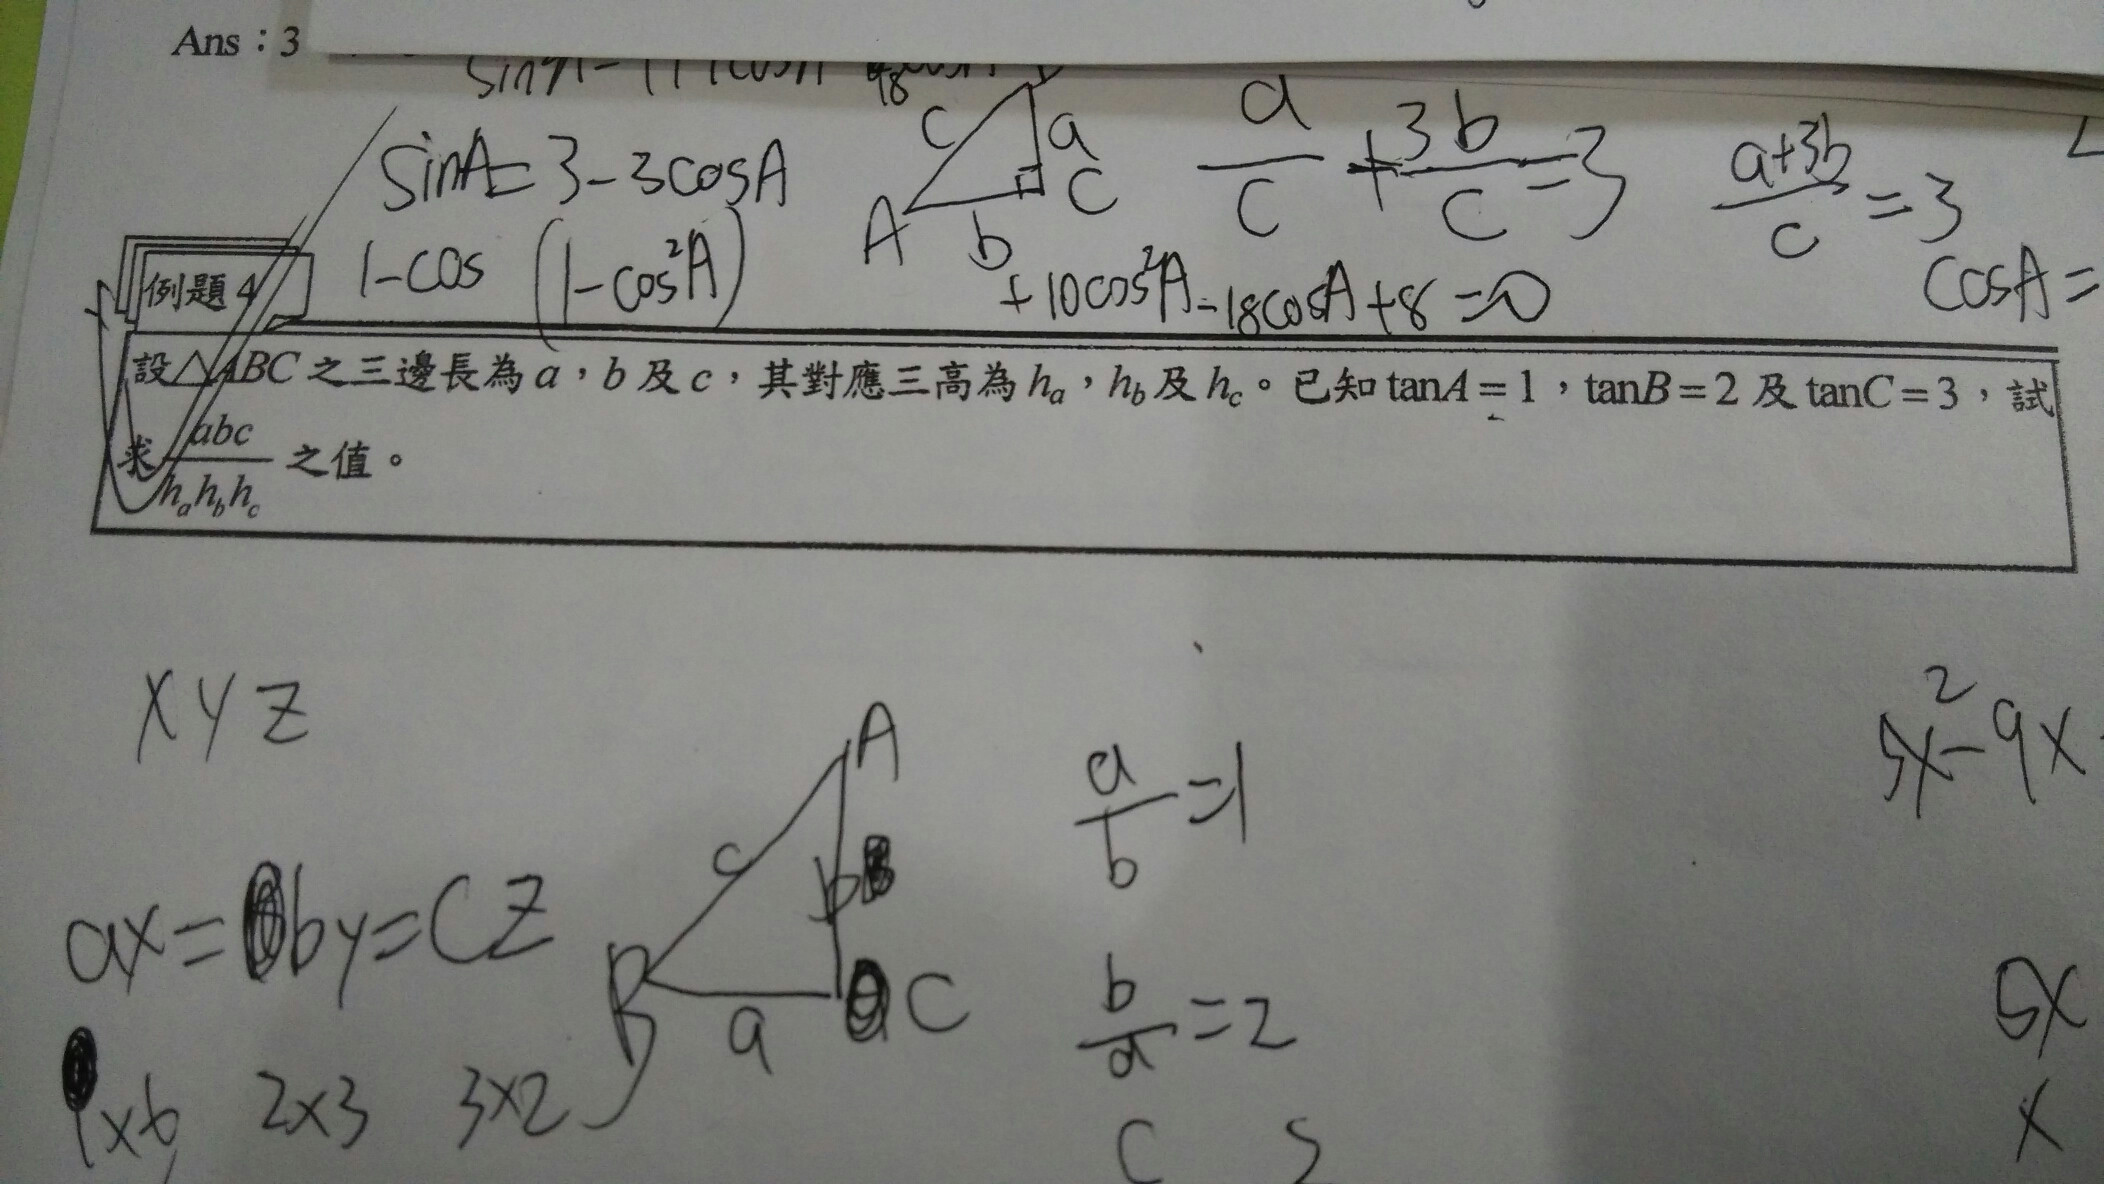 Ans：3
sinA=3-3cosA
A
b
c
a
C
a/c + 3b/c = 3
(a+3b)/c = 3
1-cos (1-cos²A)
+10cos²A-18cosA+8=0
cosA=
例題 4
設△ABC 之三邊長為 a，b 及 c，其對應三高為 hₐ，h_b 及 h_c。已知 tanA = 1，tanB = 2 及 tanC = 3，試
求 abc/(hₐh_bh_c) 之值。
X Y Z
ax=by=CZ
2x3 3x2
A
c
b
B
a
C
a/b=1
b/a=2
5x²-9x
5x
x